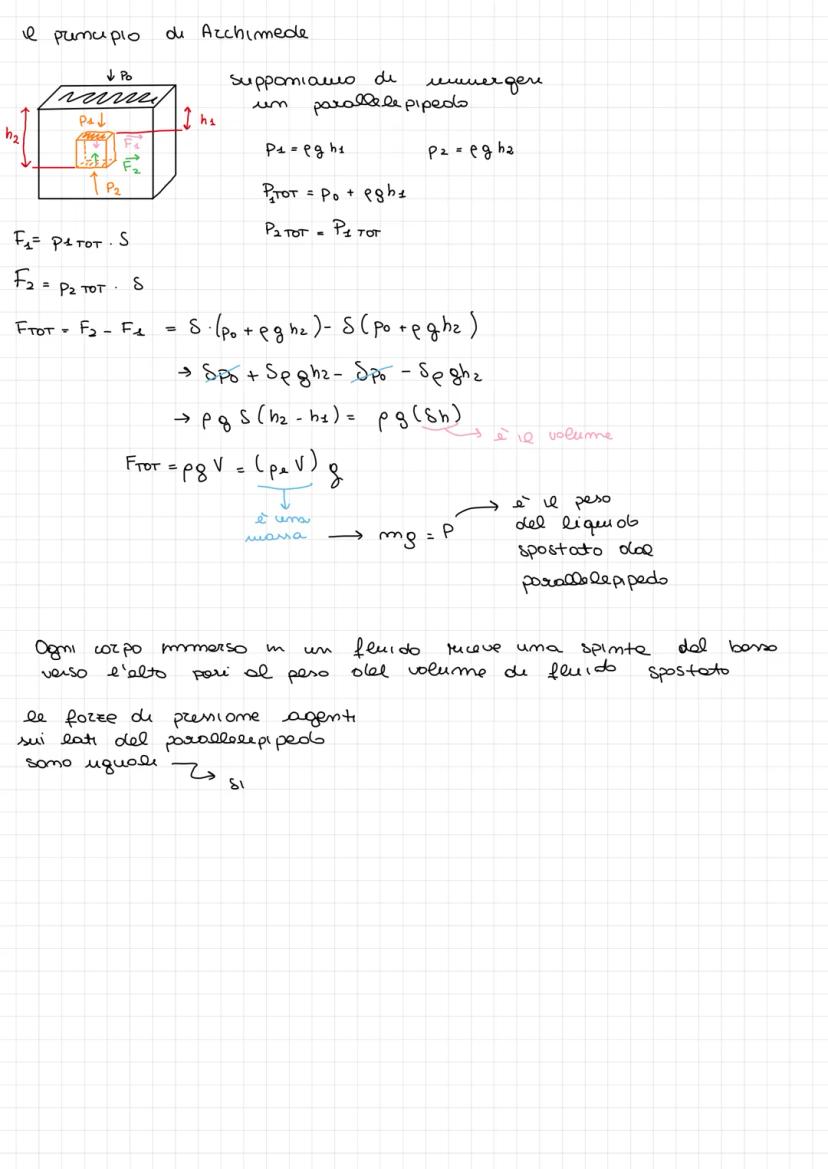 il principio di Archimede
↓ Po
suppomiamo di immergere
un parallelepipedo
P1↓
h1
h2
F1
F2
P2
P1 = ρgh1
P2 = ρgh2
P1TOT = Po + ρgh1
P2 TOT = P1 TOT
F1= P1 TOT . S
F2 = P2 TOT . S
FTOT = F2 - F1 = S·(Po + ρgh2) - S(Po + ρgh2)
→ SPo + Sρgh2 - SPo - Sρgh2
→ ρgS(h2 - h1) = ρg(Sh)
→ è il volume
FTOT = ρgV = (ρeV)g
è una
massa → mg = P → è il peso
del liquido
spostato dal
parallelepipedo
Ogni corpo immerso in un fluido riceve una spinta dal basso
verso l'alto pari al peso del volume di fluido spostato
le forze di pressione agenti
sui lati del parallelepipedo
sono uguali → si